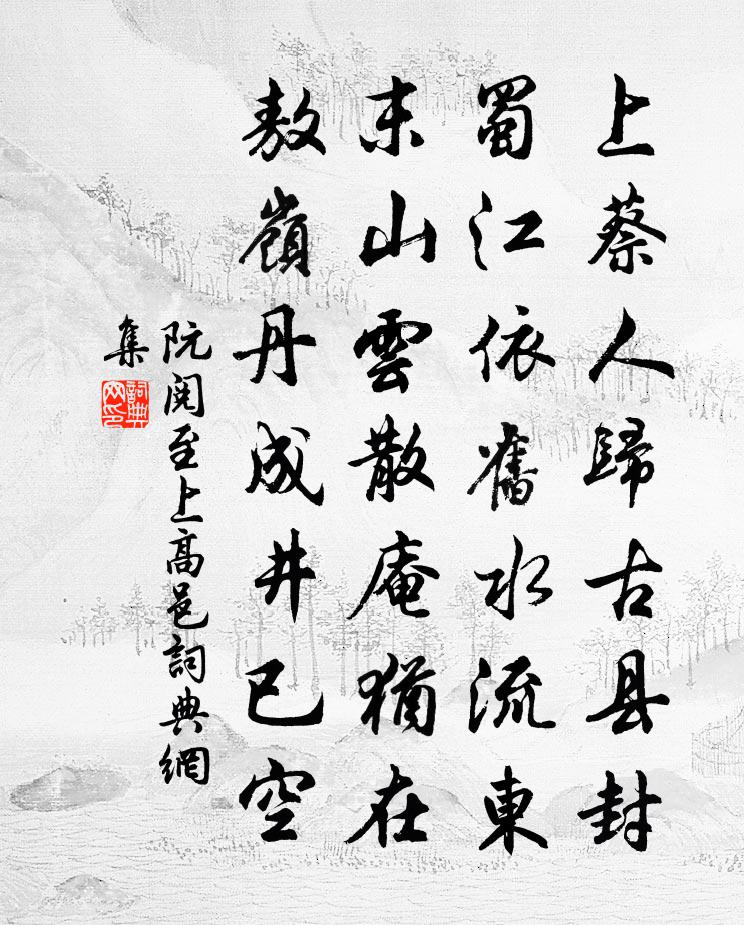 上蔡人歸古县封
蜀江依舊水流東
末山雲散庵猶在
敖嶺丹成井已空
阮閱至上高邑詞典網
集
詞典
网印